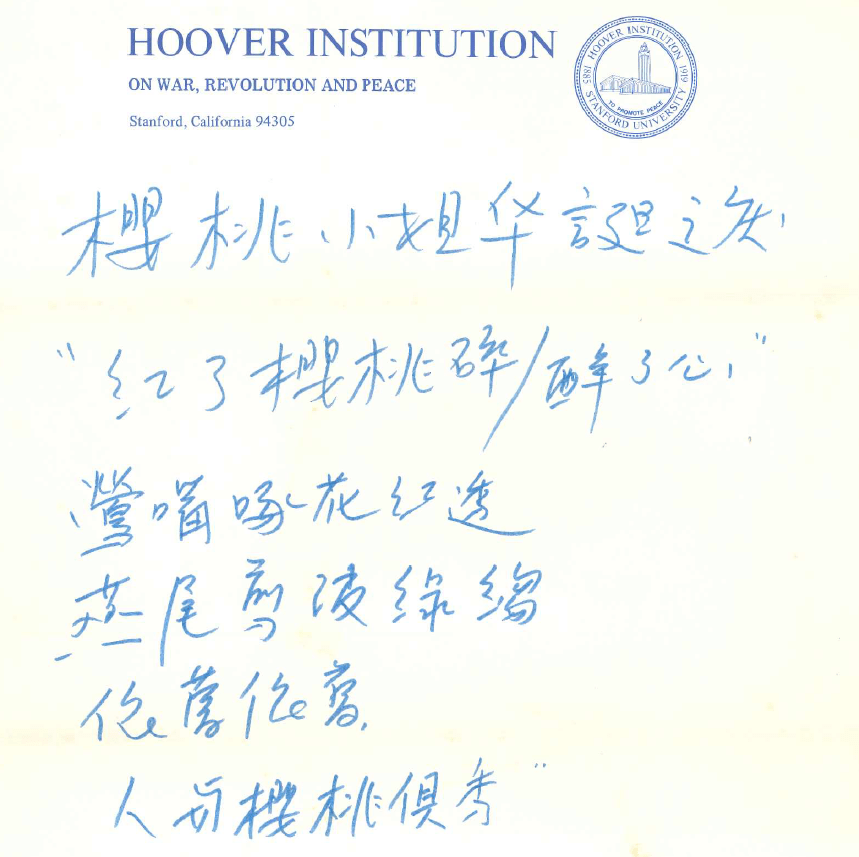 HOOVER INSTITUTION
ON WAR, REVOLUTION AND PEACE
Stanford, California 94305
HOOVER INSTITUTION
1885 1919
TO PROMOTE PEACE
STANFORD UNIVERSITY
櫻桃小姐华誕之庆,
"红了櫻桃碎/醉了心,"
鶯嘴啄花红透
燕尾剪波綠縐
依舊依舊,
人与櫻桃俱秀"